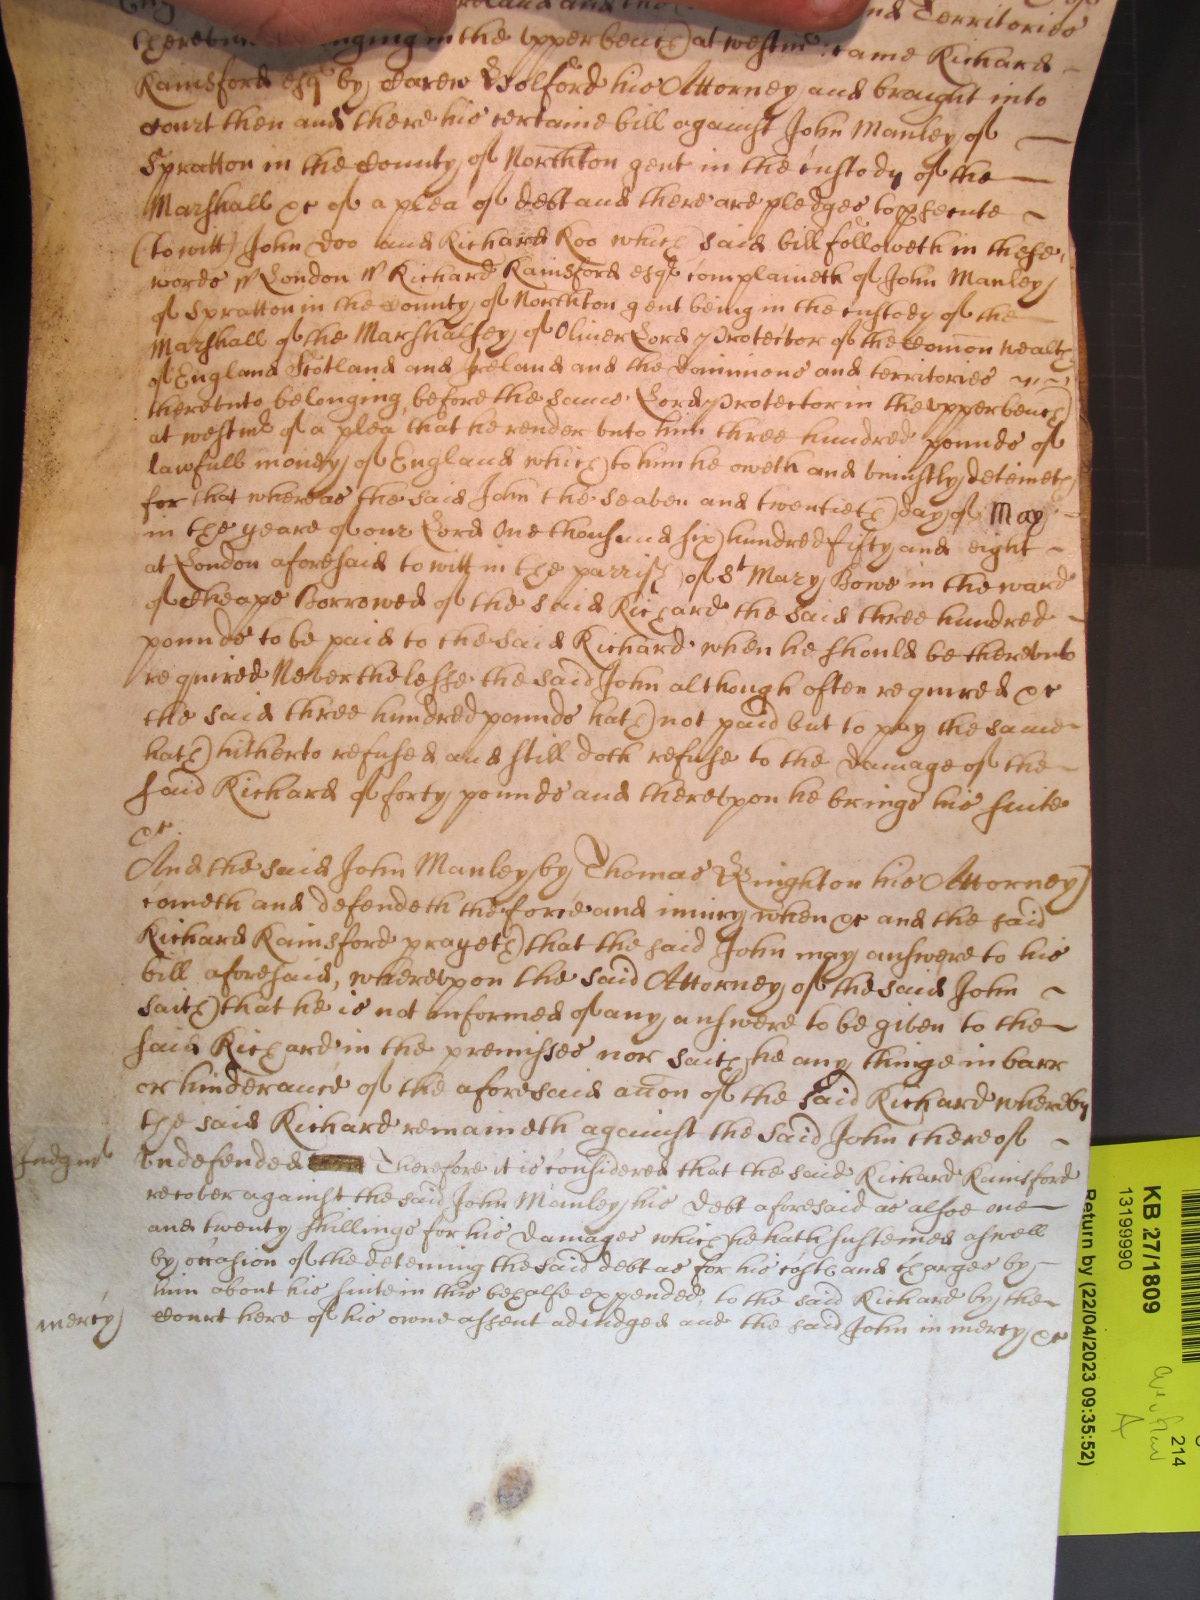 nd Territories
in the upper bench) at westm came Richard
Rainsford esqr by Carew Wolford his Attorney and brought into
Court then and there his certaine bill against John Manley of
Spratton in the County of Northton gent in the custody of the
Marshall &c of a plea of debt and there are pledges to psecute
(to witt) John Doo and Richard Roo which said bill followeth in these
words ss London ss Richard Rainsford esqr complaineth of John Manley
of Spratton in the County of Northton gent being in the custody of the
Marshall of the Marshalsey of Oliver Lord Protector of the Comon wealth
of England Scotland and Ireland and the dominions and territories
thereunto belonging before the same Lord Protector in the upper bench)
at westmr of a plea that he render unto him three hundred pounds of
lawfull money of England which) to him he oweth and uniustly deteineth
for that whereas the said John the seaven and twentieth) day of May
in the yeare of our Lord One thousand six hundred fifty and eight
at London aforesaid to witt in the parrish) of St Mary Bowe in the ward
of Cheape Borrowed of the said Richard the said three hundred
pounds to be paid to the said Richard when he should be thereunto
required Neverthelesse the said John although often required &c
the said three hundred pounds hath) not paid but to pay the same
hath) hitherto refused and still doth refuse to the damage of the
said Richard of forty pounds and thereupon he brings his suite
&c
And the said John Manley by Thomas Wrighton his Attorney
cometh and defendeth the force and iniury when &c and the said
Richard Rainsford prayeth) that the said John may answere to his
bill aforesaid, whereupon the said Attorney of the said John
saith) that he is not informed of any answere to be given to the
said Richard in the premisses nor saith he any thinge in barr
or hinderance of the aforesaid accon of the said Richard whereby
the said Richard remaineth against the said John thereof
Judgmt undefended Therefore it is considered that the said Richard Rainsford
recover against the said John Manley his debt aforesaid as alsoe one
and twenty shillings for his damages which he hath susteined aswell
by occasion of the deteining the said debt as for his costs and charges by
him about his suite in this behalfe expended, to the said Richard by the
mercy Court here of his owne assent adiudged and the said John in mercy &c
KB 271809
13199990
Return by (22/04/2023 09:35:52)
214
A